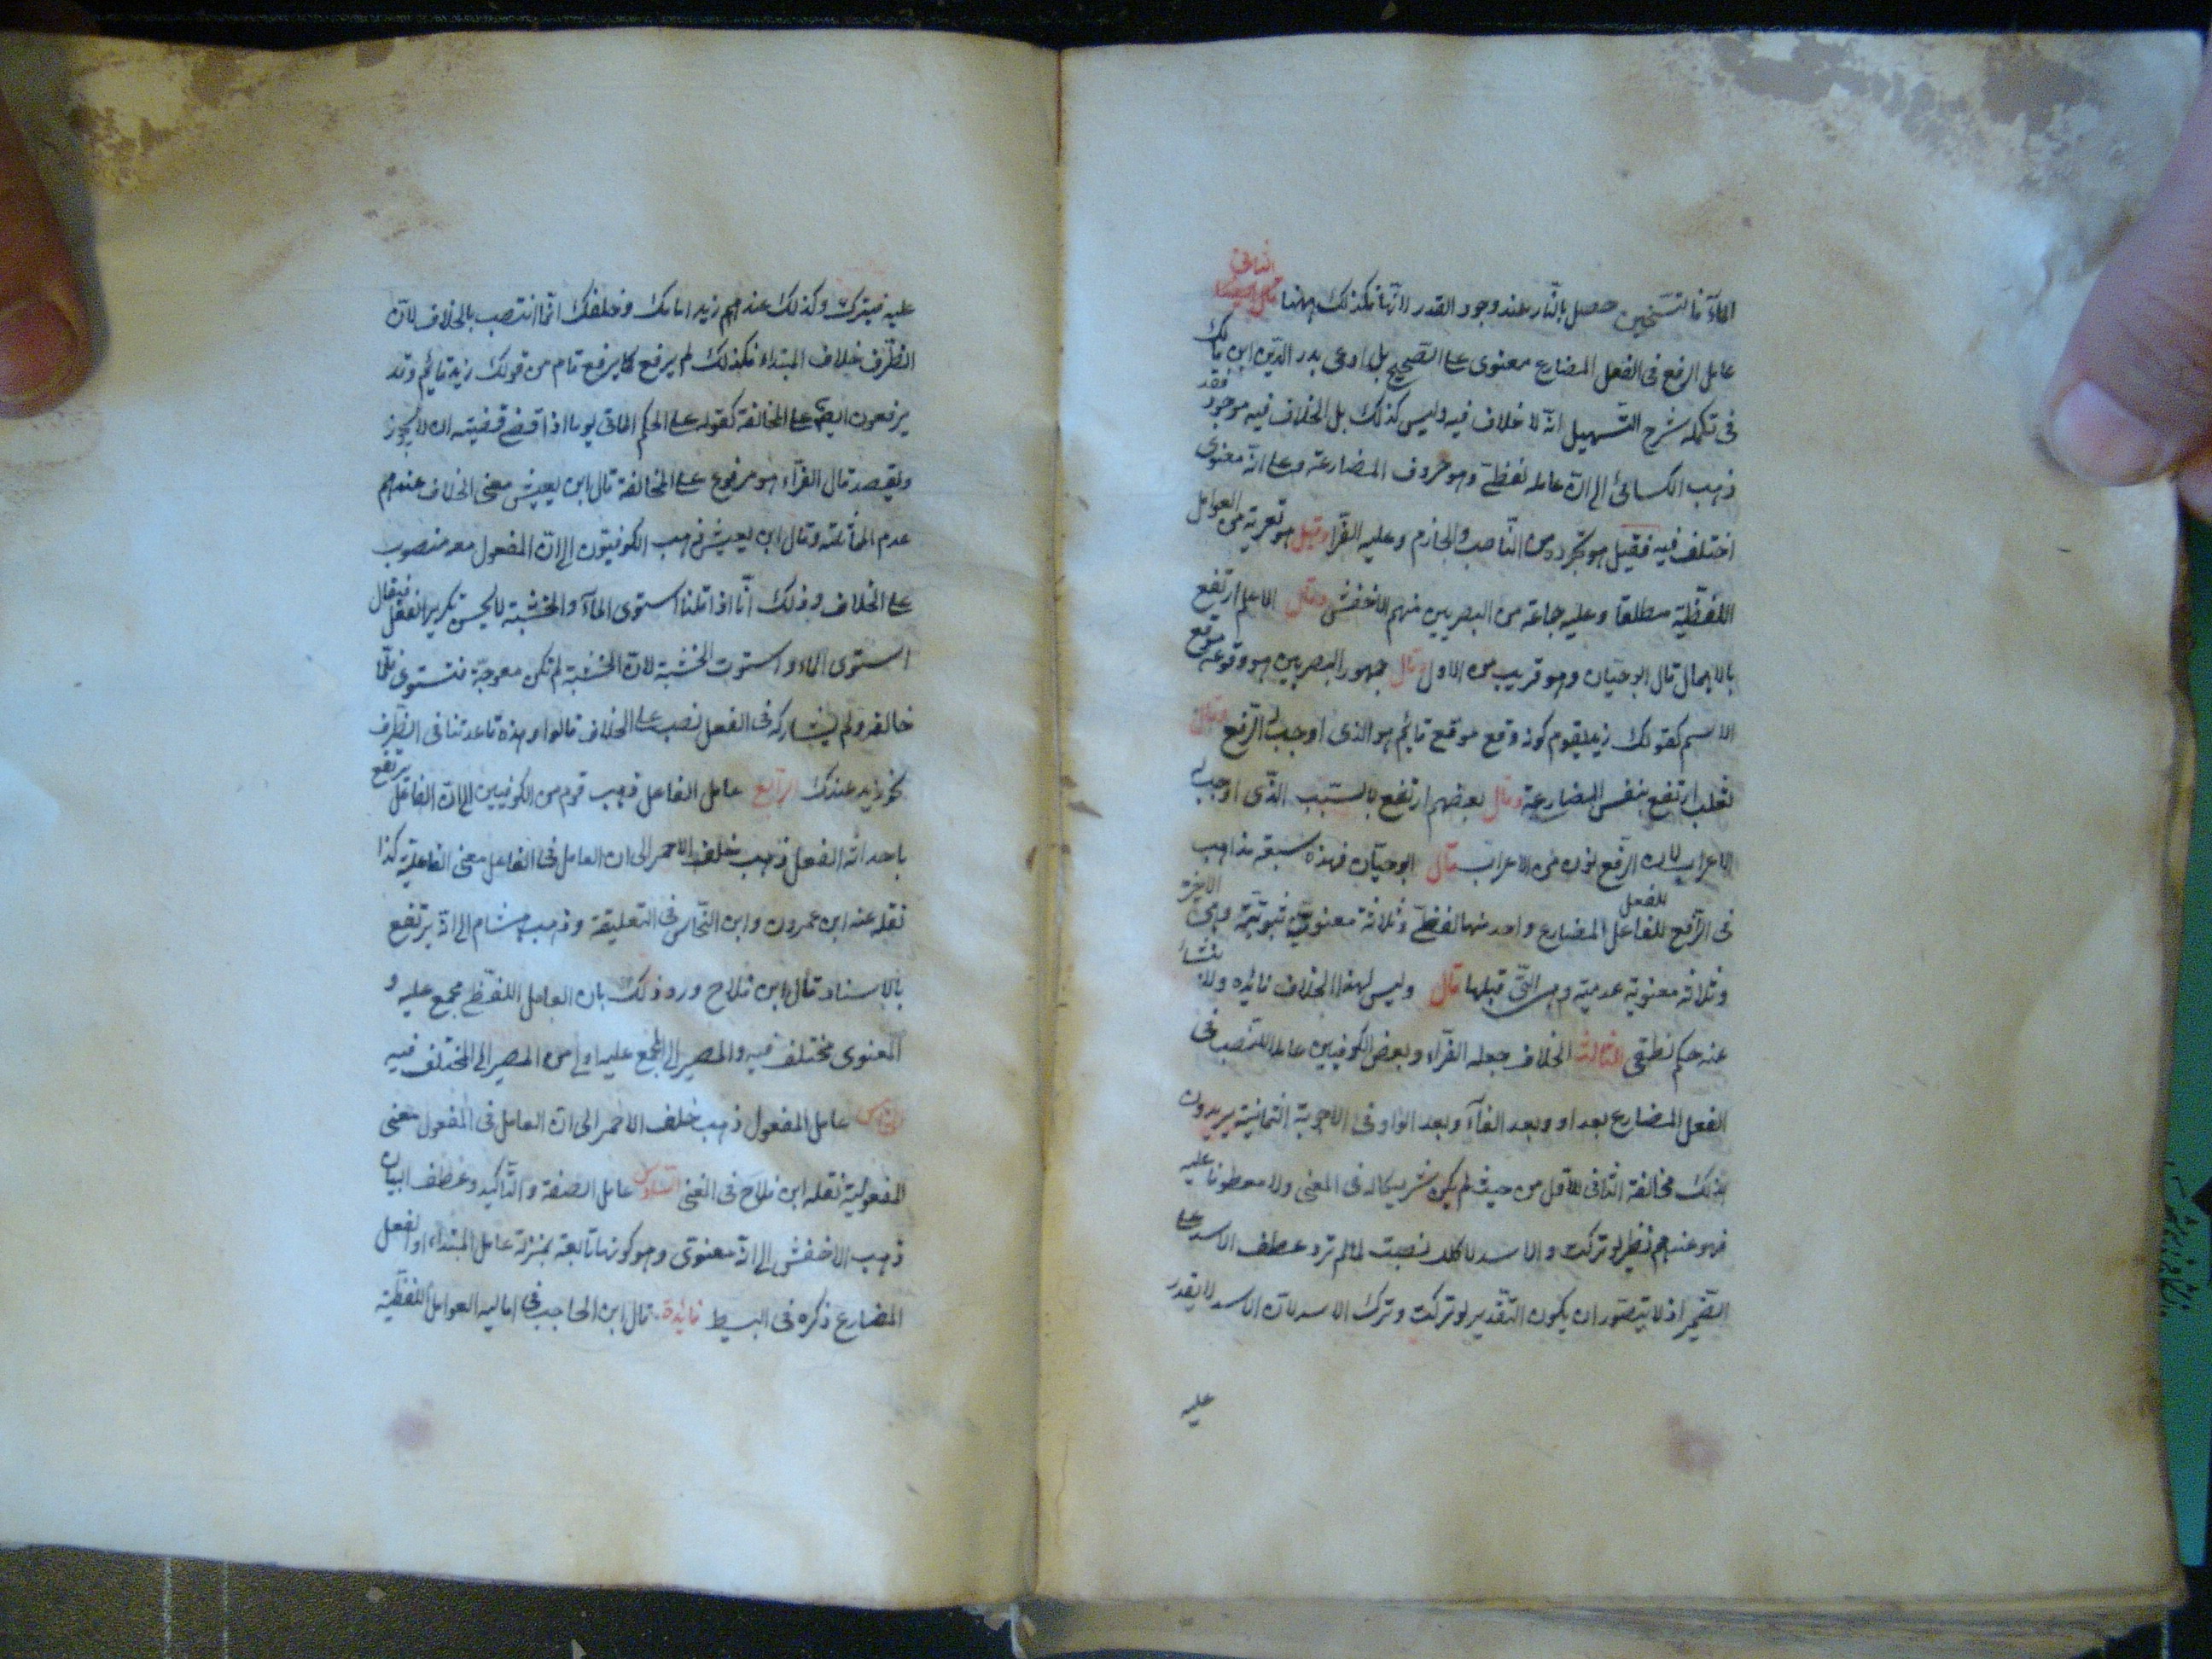 الماء فالتسخين حصل بالنار عند وجود القدر لا انها فكذلك ههنا الثانى
عامل الرفع فى الفعل المضارع معنوى على الصحيح بل ادعى بدر الدين ابن مالك
فى تكملة شرح التسهيل انه لا خلاف فيه وليس كذلك بل الخلاف فيه موجود فقد
ذهب الكسائى الى ان عامله لفظى وهو حروف المضارعة وعلى انه معنوى
اختلف فيه فقيل هو تجرده من الناصب والجازم وعليه الفرا وقيل هو تعريته من العوامل
اللفظية مطلقا وعليه جماعة من البصريين منهم الاخفش وقال الاعلم ارتفع
بالاهمال قال ابو حيان وهو قريب من الاول وقال جمهور البصريين هو وقوعه موقع
الاسم كقولك زيد يقوم كونه وقع موقع قائم هو الذى اوجب له الرفع وقال
ثعلب ارتفع بنفس المضارعة وقال بعضهم ارتفع بالسبب الذى اوجب له
الاعراب لان الرفع نوع من الاعراب قال ابو حيان فهذه سبعة مذاهب
فى الرافع للفاعل للفعل المضارع واحد منها لفظى وثلاثة معنوية ثبوتية وهى الاخيرة
وثلاثة معنوية عدمية وهى التى قبلها قال وليس لهذا الخلاف فائدة ولا ينشأ
عنه حكم نطقى الثالث الخلاف جعله الفراء وبعض الكوفيين عاملا للنصب فى
الفعل المضارع بعد او وبعد الفاء وبعد الواو فى الاجوبة الثمانية يريدون
بذلك مخالفة الثانى للاول من حيث لم يكن شريكا له فى المعنى ولا معطوفا عليه
فهو عندهم نظير لو تركت والاسد لاكلك نصبت لما لم ترد عطف الاسد على
الضمير اذ لا يتصور ان يكون التقدير لو تركت وترك الاسد لان الاسد لا يقدر
عليه
عليه فيترك وكذلك عندهم زيد امامك وخلفك انما انتصب بالخلاف لان
الظرف خلاف المبتداء فكذلك لم يرفع كما يرفع قام من قولك زيد قائم وقد
يرفعون ايضا على المخالفة كقوله على الحكم الماتى يوما اذا قضى قضيته ان لا يجوز
ويقصد قال الفراء هو مرفوع على المخالفة قال ابن يعيش معنى الخلاف عندهم
عدم المماثلة وقال ابن يعيش ذهب الكوفيون الى ان المفعول معه منصوب
على الخلاف وذلك انا اذا قلنا استوى الماء والخشبة لا يحسن تكرير الفعل فيقال
استوى الماء واستوت الخشبة لان الخشبة لم تكن معوجة فتستوى فلما
خالفه ولم يشاركه فى الفعل نصب على الخلاف قالوا وهذه قاعدتنا فى الظرف
نحو زيد عندك الرابع عامل الفاعل ذهب قوم من الكوفيين الى ان الفاعل يرتفع
باحداثه الفعل وذهب خلف الاحمر الى ان العامل فى الفاعل معنى الفاعلية كذا
نقله عنه ابن عمرون وابن النحاس فى التعليقة وذهب هشام الى انه يرتفع
بالاسناد قال ابن فلاح ورد ذلك بان العامل اللفظى مجمع عليه و
المعنوى مختلف فيه والمصير الى المجمع عليه اولى من المصير الى المختلف فيه
الخامس عامل المفعول ذهب خلف الاحمر الى ان العامل فى المفعول معنى
المفعولية نقله ابن فلاح فى المغنى السادس عامل الصفة والتاكيد وعطف البيان
ذهب الاخفش الى انه معنوى وهو كونها تابعة بمنزلة عامل المبتداء او الفعل
المضارع ذكره فى البسيط فائدة قال ابن الحاجب فى اماليه العوامل اللفظية